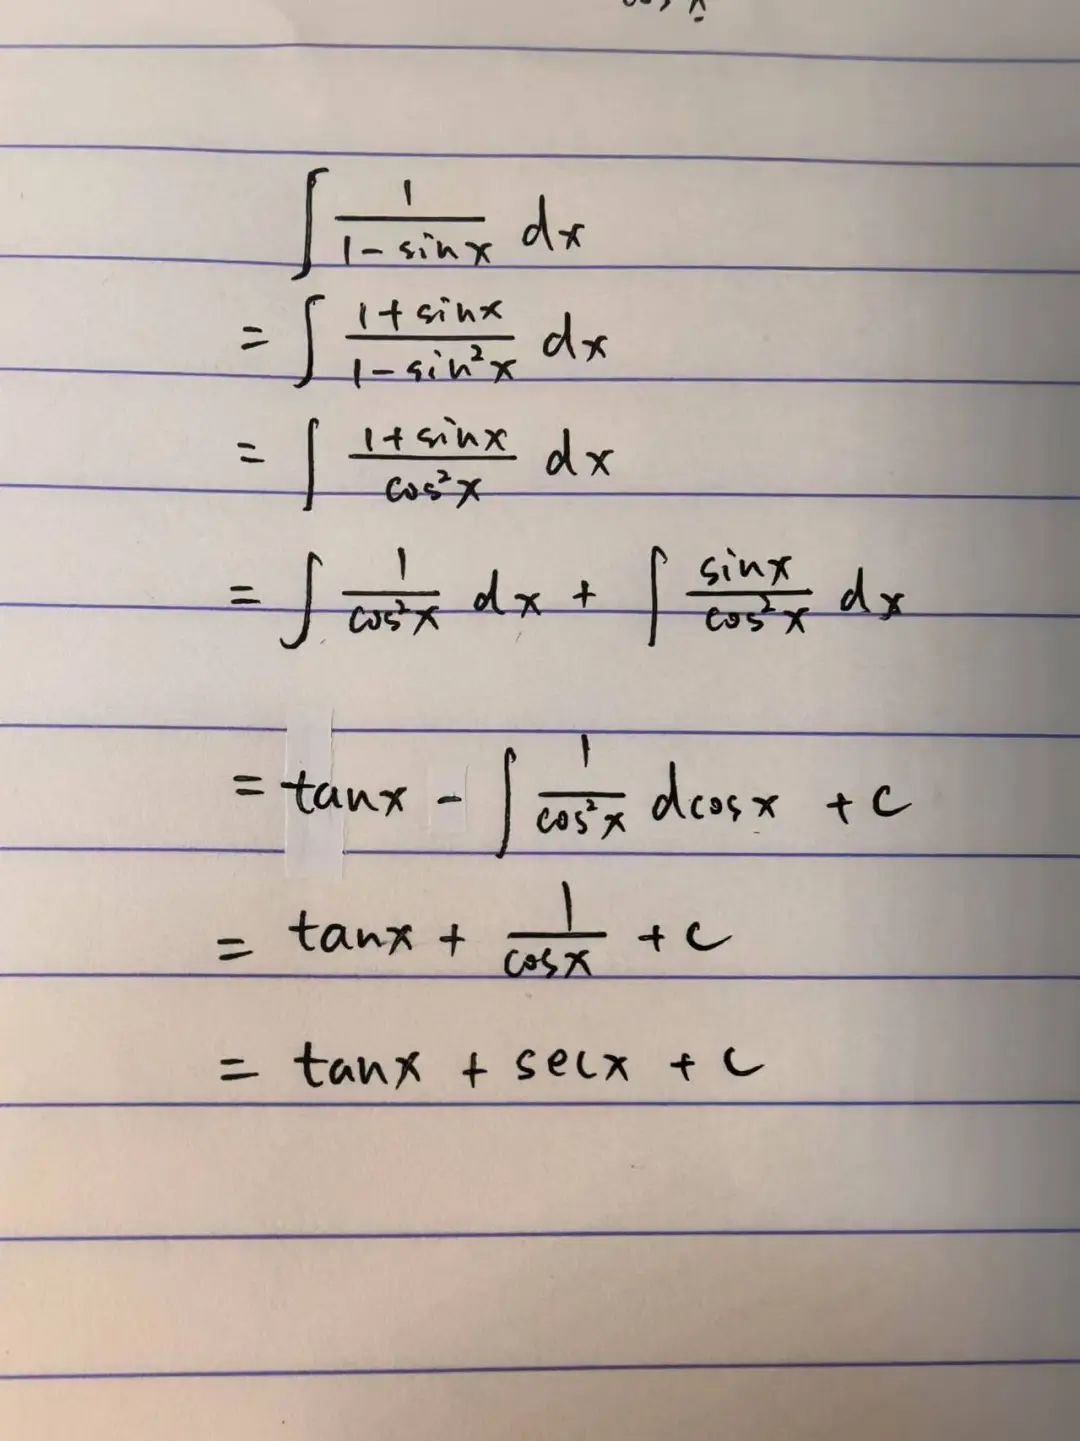 ∫ 1/(1 - sinx) dx
= ∫ (1 + sinx)/(1 - sin²x) dx
= ∫ (1 + sinx)/(cos²x) dx
= ∫ 1/(cos²x) dx + ∫ sinx/(cos²x) dx
= tanx - ∫ 1/(cos²x) dcosx + C
= tanx + 1/(cosx) + C
= tanx + secx + C